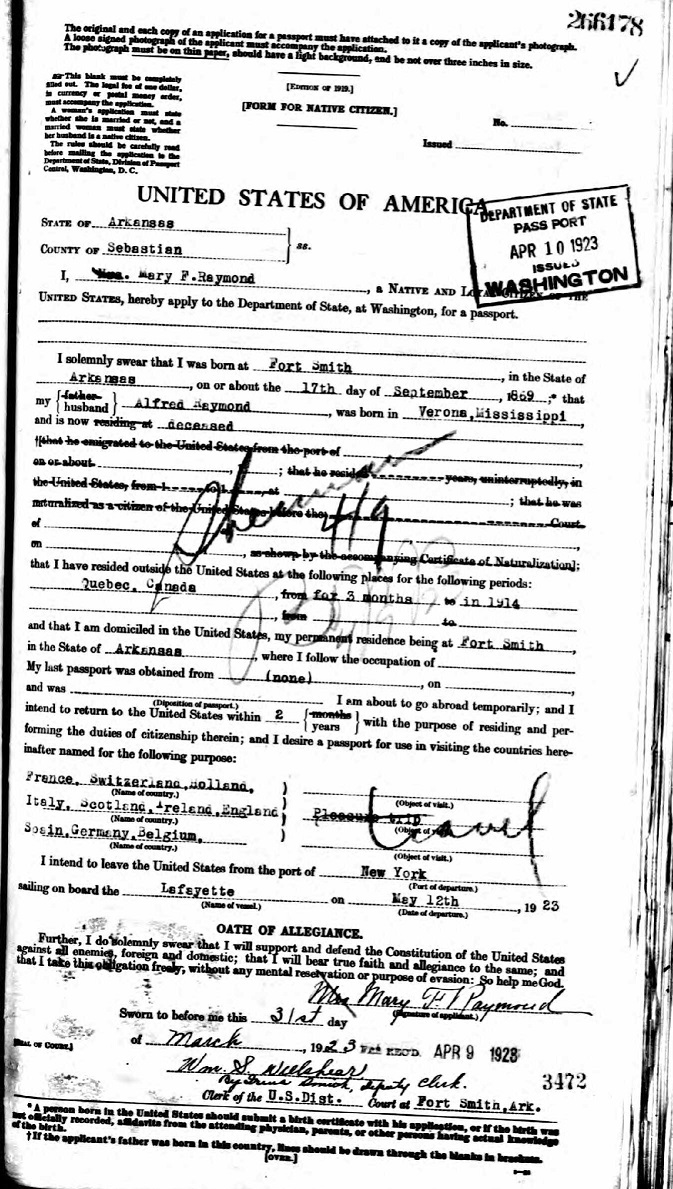 266178
The original and each copy of an application for a passport must have attached to it a copy of the applicant's photograph.
A loose signed photograph of the applicant must accompany the application.
The photograph must be on thin paper, should have a light background, and be not over three inches in size.
This blank must be completely
filled out. The legal fee of one dollar,
in currency or postal money order,
must accompany the application.
A woman's application must state
whether she is married or not, and a
married woman must state whether
her husband is a native citizen.
The rules should be carefully read
before mailing the application to the
Department of State, Division of Passport
Control, Washington, D. C.
[EDITION OF 1919.]
[FORM FOR NATIVE CITIZEN.]
No.
Issued
UNITED STATES OF AMERICA
DEPARTMENT OF STATE
PASSPORT
APR 10 1923
ISSUED
WASHINGTON
STATE OF Arkansas
COUNTY OF Sebastian } ss.
I, Mrs. Mary F. Raymond, a NATIVE AND LOYAL CITIZEN OF THE
UNITED STATES, hereby apply to the Department of State, at Washington, for a passport.
I solemnly swear that I was born at Fort Smith, in the State of
Arkansas, on or about the 17th day of September, 1869;* that
my { father husband } Alfred Raymond, was born in Verona, Mississippi,
and is now residing at deceased
†[that he emigrated to the United States from the port of
on or about ; that he resided years, uninterruptedly, in
the United States, from 1 to 1 , at ; that he was
naturalized as a citizen of the United States before the Court
of
on , as shown by the accompanying Certificate of Naturalization];
that I have resided outside the United States at the following places for the following periods:
Quebec, Canada, from for 3 months to in 1914
, from to
and that I am domiciled in the United States, my permanent residence being at Fort Smith,
in the State of Arkansas, where I follow the occupation of
My last passport was obtained from (none), on
and was (Disposition of passport.) I am about to go abroad temporarily; and I
intend to return to the United States within 2 { months years } with the purpose of residing and per-
forming the duties of citizenship therein; and I desire a passport for use in visiting the countries here-
inafter named for the following purpose:
France, Switzerland, Holland, )
(Name of country.) (Object of visit.)
Italy, Scotland, Ireland, England ) Pleasure trip travel
(Name of country.) (Object of visit.)
Spain, Germany, Belgium, )
(Name of country.) (Object of visit.)
I intend to leave the United States from the port of New York
(Port of departure.)
sailing on board the Lafayette on May 12th, 1923
(Name of vessel.) (Date of departure.)
OATH OF ALLEGIANCE.
Further, I do solemnly swear that I will support and defend the Constitution of the United States
against all enemies, foreign and domestic; that I will bear true faith and allegiance to the same; and
that I take this obligation freely, without any mental reservation or purpose of evasion: So help me God.
Mrs Mary F. Raymond
(Signature of applicant.)
Sworn to before me this 31st day
of March, 1923 FEE REC'D. APR 9 1923
[SEAL OF COURT.]
Wm. S. Wellshear
deputy Clerk. 3472
Clerk of the U.S. Dist. Court at Fort Smith, Ark.
* A person born in the United States should submit a birth certificate with his application, or if the birth was
not officially recorded, affidavits from the attending physician, parents, or other persons having actual knowledge
of the birth.
† If the applicant's father was born in this country, lines should be drawn through the blanks in brackets.
[OVER.]